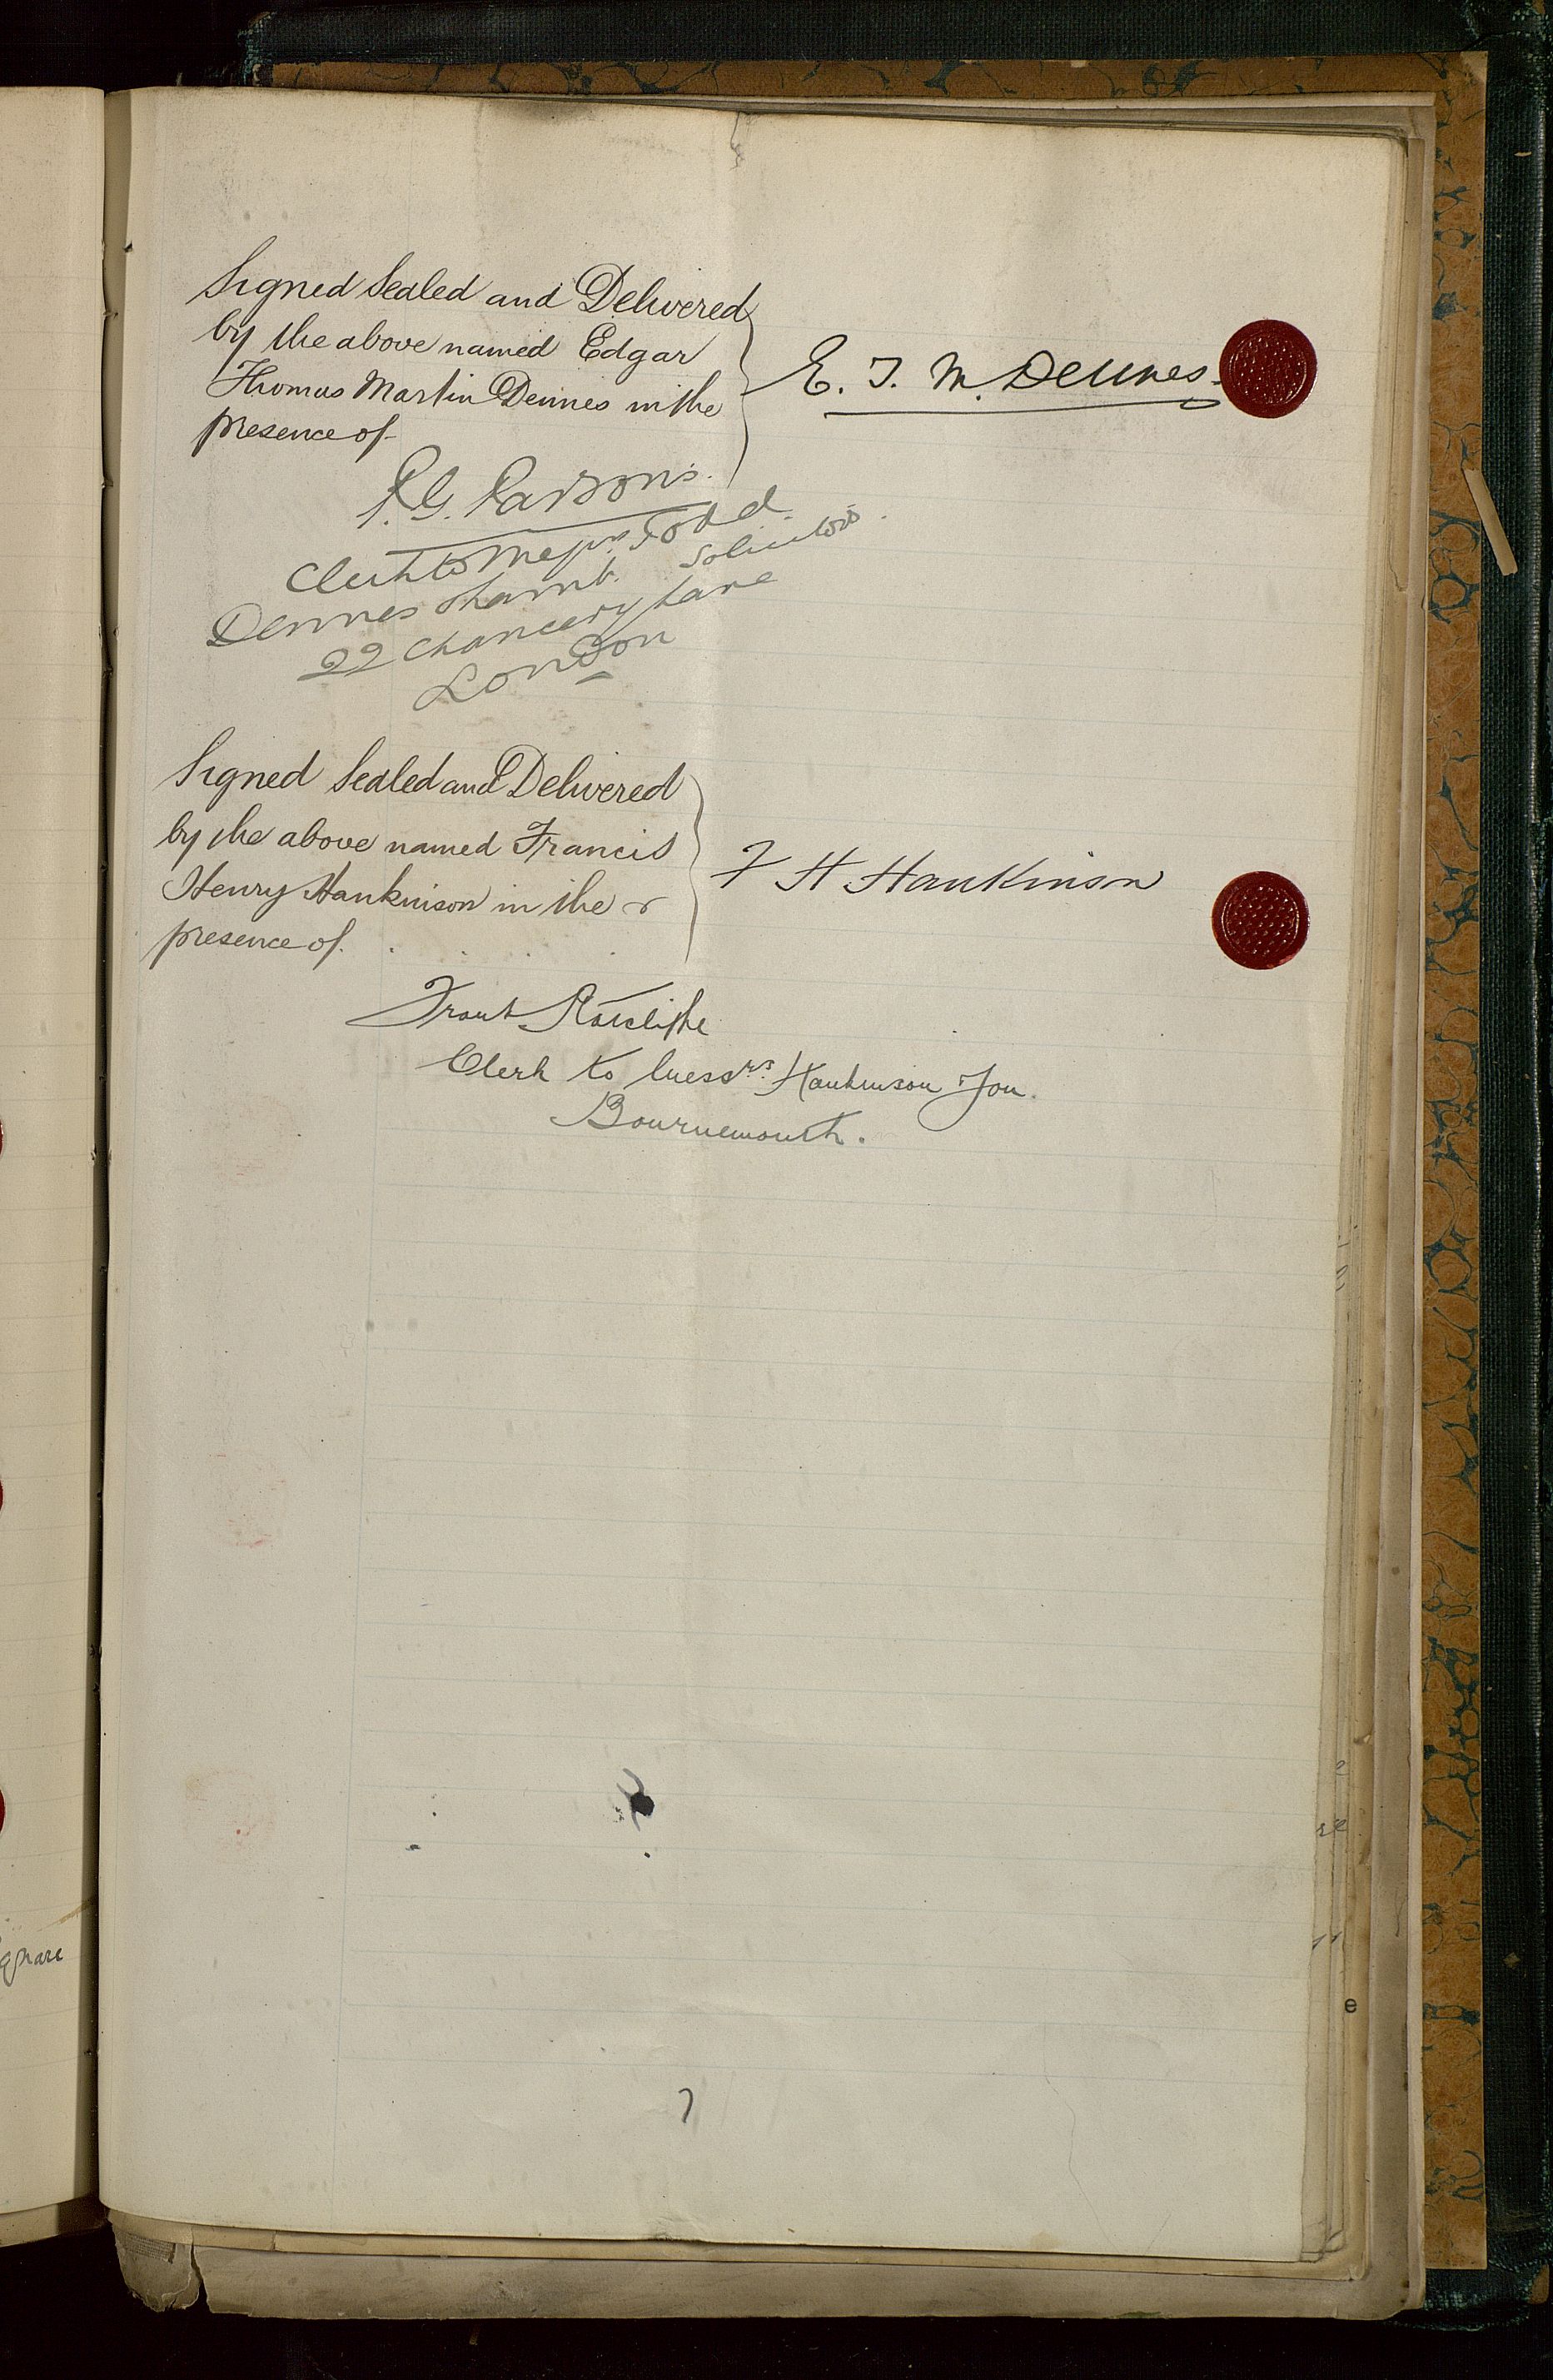 Signed Sealed and Delivered
by the above named Edgar
Thomas Martin Dennes in the
presence of
E. T. M. Dennes.
P. G. Parsons.
Clerk to Messrs Todd
Dennes & Lamb. Solicitors.
22 Chancery Lane
London
Signed Sealed and Delivered
by the above named Francis
Henry Hankinson in the
presence of.
F H Hankinson
Frank Ratcliffe
Clerk to Messrs. Hankinson & Son.
Bournemouth.
7